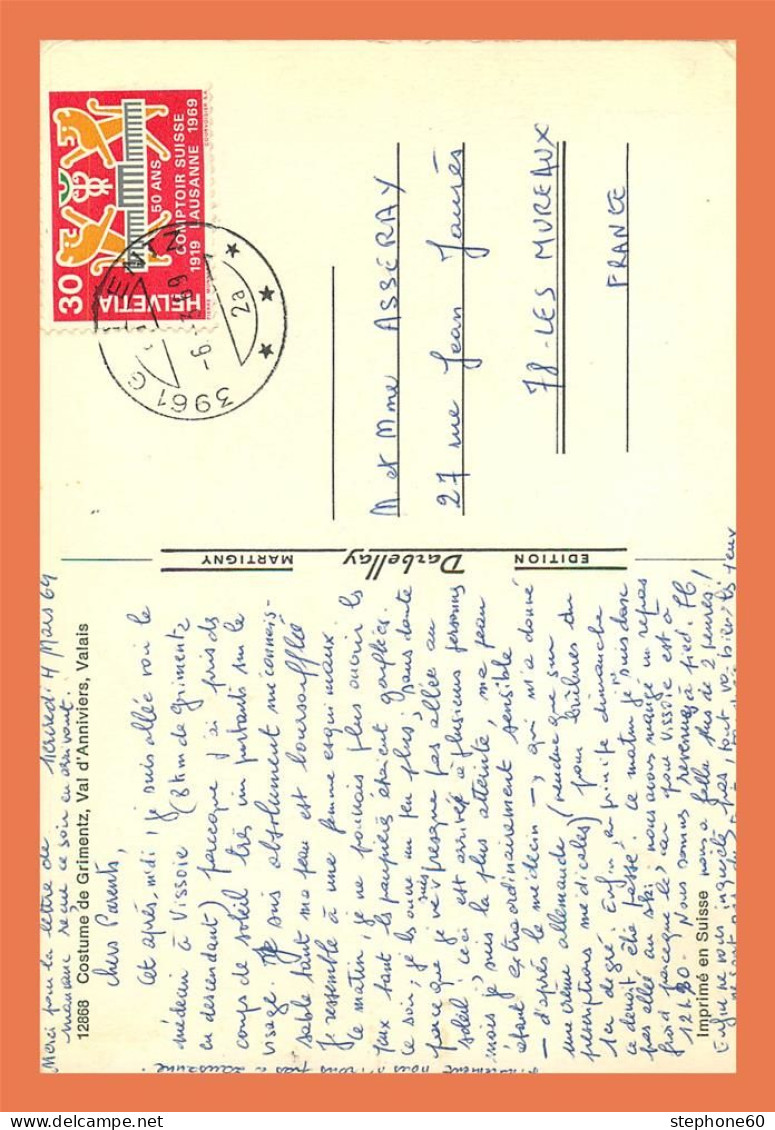 Merci pour la lettre de
maman reçue ce soir en arrivant.
Mars 69
12868 Costume de Grimentz, Val d'Anniviers, Valais
Chers Parents,
Cet après-midi, je suis allée voir le
médecin à Vissoie (8 km de Grimentz
en descendant) parceque j'ai pris des
coups de soleil très importants sur le
visage. Je suis absolument méconnais-
sable tant ma peau est boursoufflée
Je ressemble à une femme esquimaux.
Ce matin, je ne pouvais plus ouvrir les
yeux tant les paupières étaient gonflées.
Ce soir, je les ouvre un peu plus; sans doute
parce que je ne suis presque pas allée au
soleil. Ceci est arrivé à plusieurs personnes
mais je suis la plus atteinte, ma peau
étant extraordinairement sensible
- d'après le médecin - qui m'a donné
une crème allemande (
prescriptions médicales) pour brûlures du
1er degré. Enfin, dimanche
ce devrait être passé. Ce matin je ne suis donc
pas allée au ski; nous avons mangé un repas
froid parceque le car pour Vissoie est à
12h30. Nous sommes revenues à pied.
nous a fallu plus de 2 heures!
Enfin ne vous inquiétez pas, tout va bien; les yeux
ne sont
nous
pas à Lausanne.
Imprimé en Suisse
EDITION Darbellay MARTIGNY
HELVETIA 30
50 ANS
COMPTOIR SUISSE
1919 LAUSANNE 1969
COURVOISIER SA
3961 G
ENTZ
-6.
69
2a
M et Mme ASSERAY
27 rue Jean Jaurès
78 - LES MUREAUX
FRANCE
stephone60